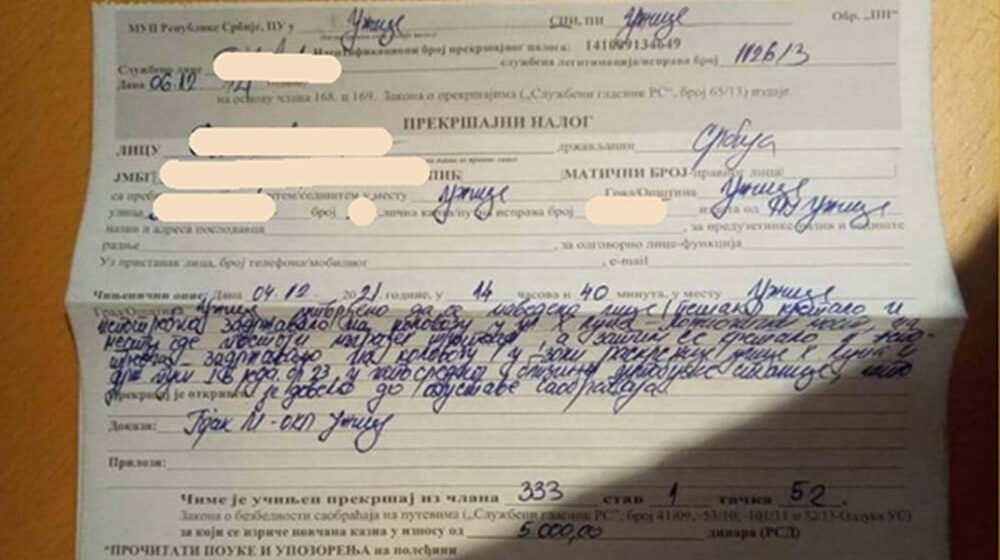 МУП Републике Србије, ПУ у Ужице СЦП, ПИ Ужице Обр. „ПН“
Идентификациони број прекршајног налога: 141089134649
Службено лице службена легитимација/исправа број 112613
Дана 06.12
на основу члана 168. и 169. Закона о прекршајима („Службени гласник РС“, број 65/13) издаје
ПРЕКРШАЈНИ НАЛОГ
ЛИЦУ држављанин Србија
ЈМБГ ПИБ МАТИЧНИ БРОЈ-правног лица
са пребивалиштем/седиштем у месту Ужице Град/Општина Ужице
улица број лична карта/путна исправа број издата од ПУ Ужице
назив и адреса послодавца , за предузетнике-назив и седиште
радње , за одговорно лице-функција
Уз пристанак лица, број телефона/мобилног , e-mail
Чињенични опис: Дана 04.12 2021 године, у 14 часова и 40 минута, у месту Ужице
Град/Општина Ужице утврђено да се наведено лице (пешак) кретало и
задржавало на коловозу у ул
месту где, а затим се кретало и
задржавало на коловозу у зони раскрснице улице
1Б реда бр 23, и непосредној близини станице,
прекршај је откривен је довело до обуставе саобраћаја.
Докази: Ужице
Прилози:
Чиме је учињен прекршај из члана 333 став 1 тачка 52.
Закона о безбедности саобраћаја на путевима („Службени гласник РС“, број 41/09, 53/10, 101/11 и 32/13-Одлука УС)
за који се изриче новчана казна у износу од 5.000,00 динара (РСД)
*ПРОЧИТАТИ ПОУКЕ И УПОЗОРЕЊА на полеђини